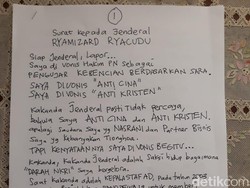 1
Surat kepada Jenderal
RYAMIZARD RYACUDU
Siap Jenderal, Lapor...
Saya di Vonis Hakim PN sebagai
PENYEBAR KEBENCIAN BERDASARKAN SARA.
SAYA DIVONIS "ANTI CINA"
SAYA DIVONIS "ANTI KRISTEN"
Kakanda Jenderal pasti tidak percaya,
bahwa Saya ANTI CINA dan ANTI KRISTEN,
apalagi Saudara Saya yg NASRANI dan Partner Bisnis
Saya yg
TAPI KENYATAANNYA SAYA DIVONIS BEGITU...
Kakanda Jenderal adalah saksi hidup bagaimana
"DARAH NKRI" Saya
Saat Kakanda adalah KEPALA STAF AD, pada tahun
detikcom